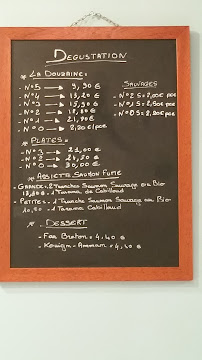 DEGUSTATION
* LA DOUZAINE:
- N°5 → 9,90 €
- N°4 → 13,20 €
- N°3 → 15,90 €
- N°2 → 18,80 €
- N°1 → 21,90 €
- N°0 → 2,20 €/pce
SAUVAGES
- N°2 S = 2,00 €/pce
- N°0 S = 2,00 €/pce
* PLATES:
- N°3 → 21,00 €
- N°0 → 30,00 €
* ASSIETTE SAUMON FUMÉ
- GRANDE: 2 Tranches Saumon Sauvage ou Bio
1 Tarama de Cabillaud
- PETITE: 1 Tranche Saumon Sauvage ou Bio
10,50 - 1 Tarama Cabillaud
* DESSERT
- Far Breton = 4,40 €
- Kouign-Amman = 4,40 €